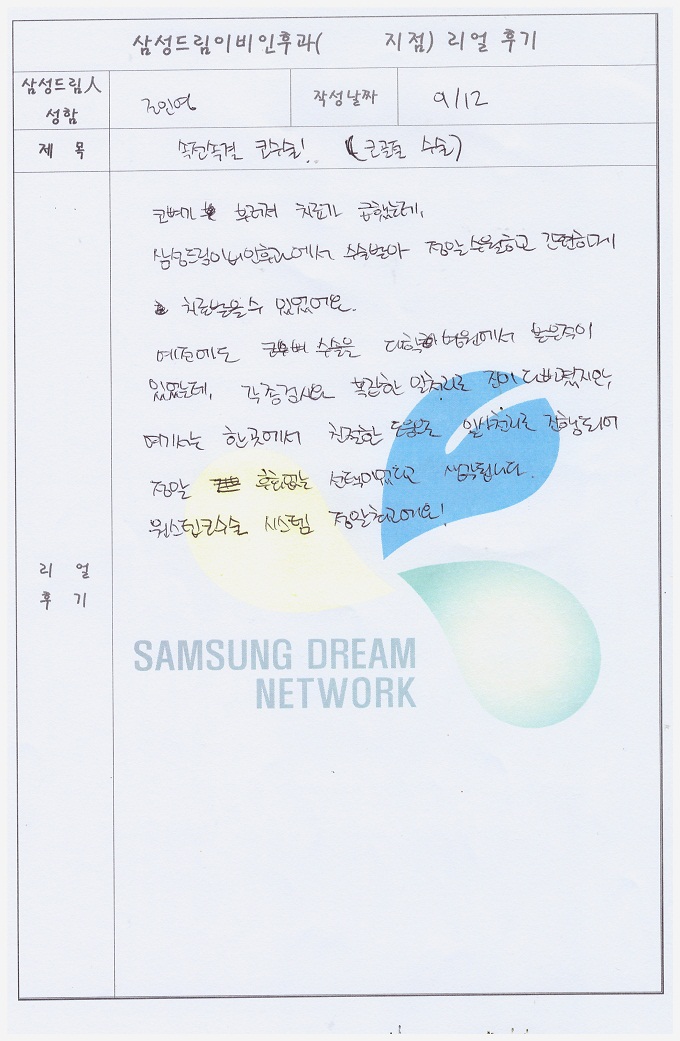 삼성드림이비인후과( 지점) 리얼 후기
삼성드림人 성함
조인영
작성날짜
9/12
제 목
속전속결 코수술! (코골절 수술)
코뼈가 부러져 치료가 급했는데,
삼성드림이비인후과에서 수술받아 정말 수월하고 간편하게
치료받을 수 있었어요.
예전에도 수술을 대학병원에서 받은적이
있었는데, 각종검사와 복잡한 일처리로 진이 다빠졌지만,
여기서는 한곳에서 친절한 도움으로 일사천리로 진행되어
정말 후회없는 선택이었다고 생각됩니다.
원스텝코수술 시스템 정말최고에요!
리 얼
후 기
SAMSUNG DREAM
NETWORK